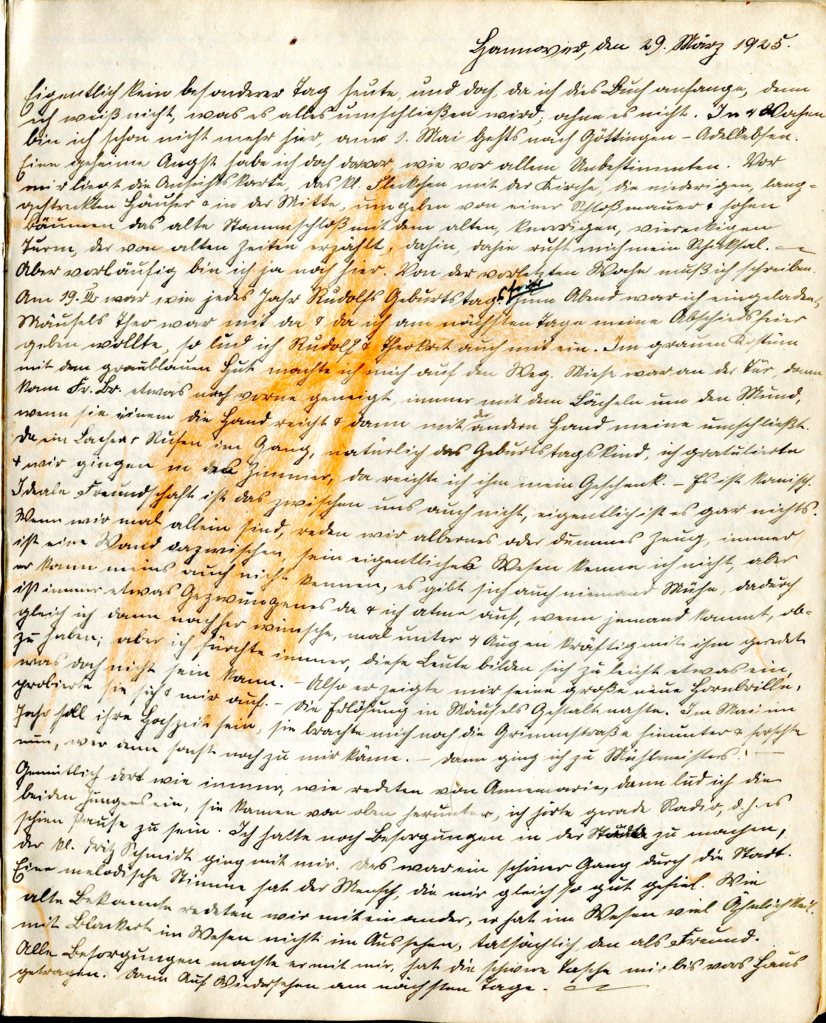 Hannover, den 29. März 1925.
Eigentlich kein besonderer Tag heute, und doch, da ich dies Buch anfange, denn
ich weiß nicht, was es alles umschließen wird, ahne es nicht. In 4 Wochen
bin ich schon nicht mehr hier, am 1. Mai gehts nach Göttingen – Adelebsen.
Eine geheime Angst habe ich doch davor, wie vor allem Unbestimmten. Vor
mir liegt die Ansichtskarte, das kl. Fleckchen mit der Kirche, die niedrigen, lang-
gestreckten Häuser & in der Mitte, umgeben von einer Schloßmauer & hohen
Bäumen das alte Stammschloß mit dem alten, knorrigen, viereckigen
Turm, der von alten Zeiten erzählt, dahin, dahin ruft mich mein Schicksal. –
Aber vorläufig bin ich ja noch hier. Von der vorletzten Woche muß ich schreiben.
Am 19. III war wie jedes Jahr Rudolfs Geburtstag. Zum Abend war ich eingeladen,
Mäusels Theo war mit da & da ich am nächsten Tage meine Abschiedsfeier
geben wollte, so lud ich Rudolf & Theokrit auch mit ein. Im grauen Kostüm
mit dem graublauen Hut machte ich mich auf den Weg. Miesz war an der Tür, dann
kam Fr. Br. etwas nach vorne geneigt, immer mit dem Lächeln um den Mund,
wenn sie einem die Hand reicht & dann mit der andern Hand meine umschließt.
Da ein Lachen & Rufen im Gang, natürlich das Geburtstagskind, ich gratulierte
& wir gingen in das Zimmer, da reichte ich ihm mein Geschenk. – Es ist komisch.
Ideale Freundschaft ist das zwischen uns auch nicht, eigentlich ist es gar nichts.
Wenn wir mal allein sind, reden wir albernes oder dummes Zeug, immer
ist eine Wand dazwischen, sein eigentliches Wesen kenne ich nicht, aber
er kann meins auch nicht kennen, es gibt sich auch niemand Mühe, dadurch
ist immer etwas Gezwungenes da & ich atme auf, wenn jemand kommt, ob-
gleich ich dann nachher wünsche, mal unter 4 Augen kräftig mit ihm geredet
zu haben; aber ich fürchte immer, diese Leute bilden sich zu leicht etwas ein,
was doch nicht sein kann. – Also er zeigte mir seine große neue Hornbrille,
probierte sie sich & mir auf. – Die Erlösung in Mäusels Gestalt nahte. Im Mai im
Jahr soll ihre Hochzeit sein, sie brachte mich noch die Grimmstraße hinunter & forschte
nun, wer denn sonst noch zu mir käme. – Dann ging ich zu Mühlmeisters. –
Gemütlich dort wie immer, wir redeten von Annemarie, dann lud ich die
beiden Jungens ein, sie kamen von oben herunter, ich hörte gerade Radio, d. h. es
schien Pause zu sein. Ich hatte noch Besorgungen in der Stadt zu machen,
der kl. Fritz Schmidt ging mit mir. Das war ein schöner Gang durch die Stadt.
Eine melodische Stimme hat der Mensch, die mir gleich so gut gefiel. Wie
alte Bekannte redeten wir miteinander, er hat im Wesen viel Ähnlichkeit
mit Blackert im Wesen nicht im Aussehen, tatsächlich, den als Freund.
Alle Besorgungen machte er mit mir, hat die schwere Tasche mir bis vors Haus
getragen. Dann Auf Wiedersehen am nächsten Tage. –